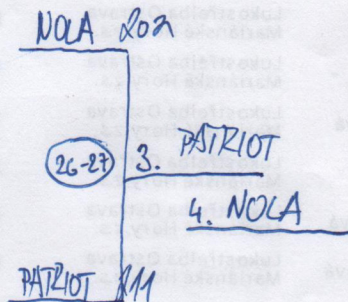 NOLA
26-27
3. PATRIOT
4. NOLA
PATRIOT 11